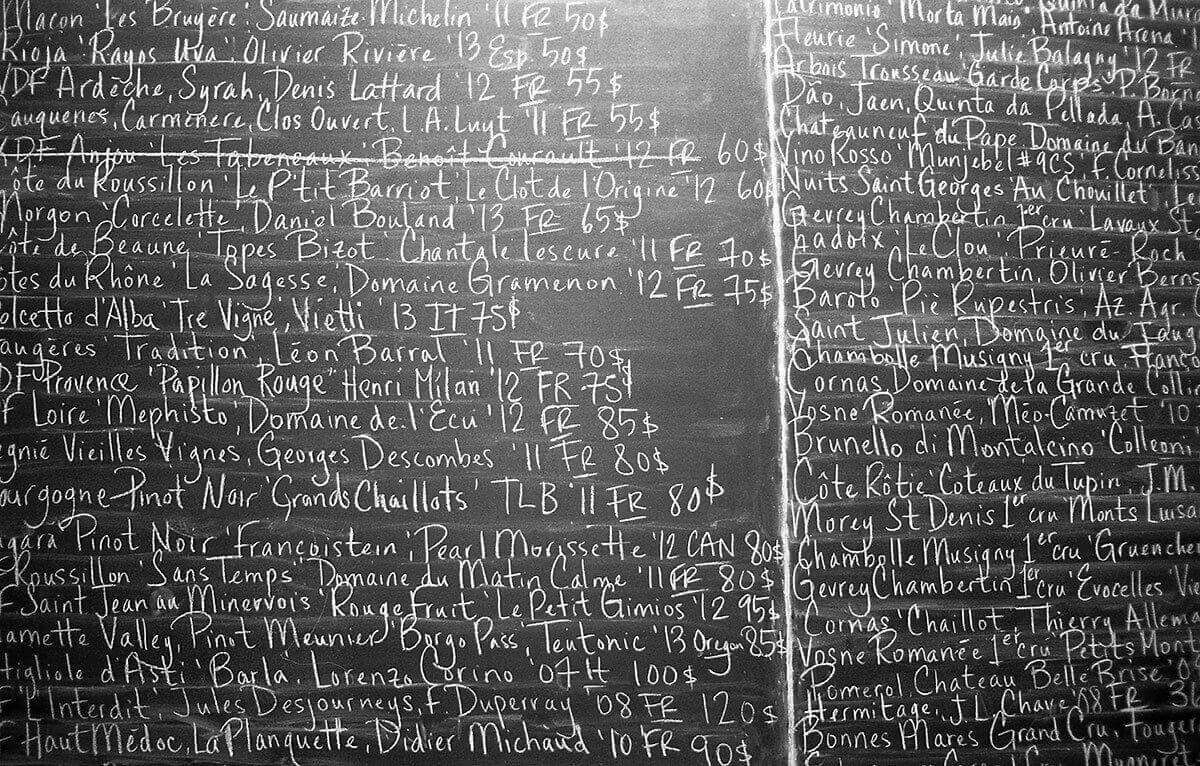 Macon 'Les Bruyère' Saumaize-Michelin '11 FR 50$
Rioja 'Rayos Uva' Olivier Rivière '13 Esp. 50$
VDF Ardèche, Syrah, Denis Lattard '12 FR 55$
auquenes, Carmenere, Clos Ouvert, L.A. Luyt '11 FR 55$
VDF Anjou 'Les Tabeneaux' Benoît Courault '12 FR 60$
ôte du Roussillon 'Le P'tit Barriot', Le Clot de l'Origine '12 60$
Morgon 'Corcelette', Daniel Bouland '13 FR 65$
ôte de Beaune 'Topes Bizot' Chantale Lescure '11 FR 70$
ôtes du Rhône 'La Sagesse', Domaine Gramenon '12 FR 75$
olcetto d'Alba 'Tre Vigne', Vietti '13 IT 75$
augères 'Tradition', Léon Barral '11 FR 70$
DF Provence 'Papillon Rouge' Henri Milan '12 FR 75$
F Loire 'Mephisto', Domaine de l'Écu '12 FR 85$
egnié Vieilles Vignes, Georges Descombes '11 FR 80$
ourgogne Pinot Noir 'Grands Chaillots' TLB '11 FR 80$
agara Pinot Noir 'Françoistein', Pearl Morissette '12 CAN 80$
Roussillon 'Sans Temps' Domaine du Matin Calme '11 FR 80$
F Saint Jean au Minervois 'Rouge Fruit' Le Petit Gimios '12 95$
lamette Valley, Pinot Meunier 'Borgo Pass', Teutonic '13 Oregon 85$
tigliole d'Asti 'Barla', Lorenzo Corino '04 It 100$
F 'L'Interdit', Jules Desjourneys, F. Duperray '08 FR 120$
F Haut Médoc, La Planquette, Didier Michaud '10 FR 90$
Patrimonio 'Morta Maio', Antoine Arena '1
Fleurie 'Simone', Julie Balagny '12 FR
Arbois Trousseau 'Garde Corps' P. Borna
Dão, Jaen, Quinta da Pellada, A. Ca
Chateauneuf du Pape, Domaine du Ban
Vino Rosso 'Munjebel #9CS', F. Corneliss
Nuits Saint Georges 'Au Chouillet', Le
Gevrey Chambertin 1er cru 'Lavaux St
Ladoix 'Le Clou', Prieuré-Roch
Gevrey Chambertin, Olivier Berns
Barolo 'Piè Rupestris', Az. Agr.
Saint Julien, Domaine du Jaug
Chambolle Musigny 1er cru,
Cornas, Domaine de la Grande Coll
Vosne Romanée, Méo-Camuzet '10
Brunello di Montalcino 'Colleoni'
Côte Rôtie 'Coteaux du Tupin', J.M.
Morey St Denis 1er cru Monts Luisa
Chambolle Musigny 1er cru 'Gruenche
Gevrey Chambertin 1er cru 'Evocelles'
Cornas 'Chaillot', Thierry Allema
Vosne Romanée 1er cru 'Petits Mont
Pomerol Chateau Belle Brise '0
Hermitage, J.L. Chave '08 FR 3
Bonnes Mares Grand Cru, Fouger